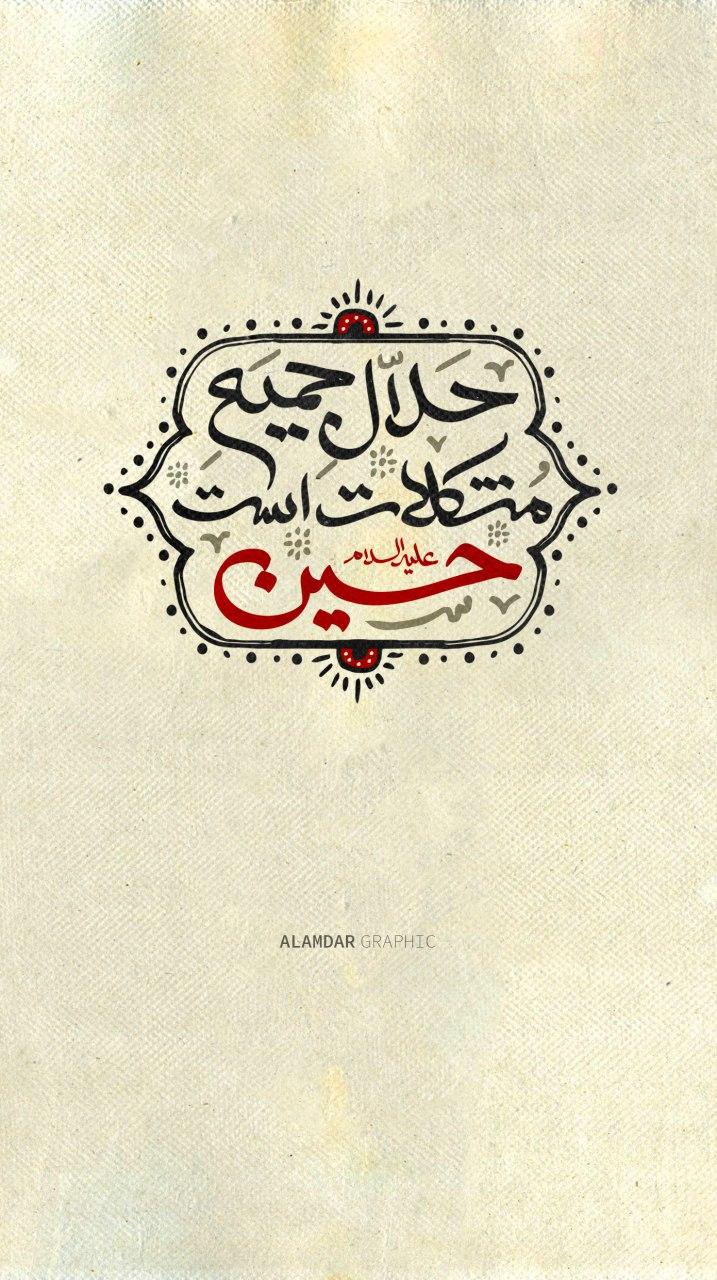 حَلّال جمیَع
مُشکلات اَستَ
حسین علیه السلام
ALAMDAR GRAPHIC